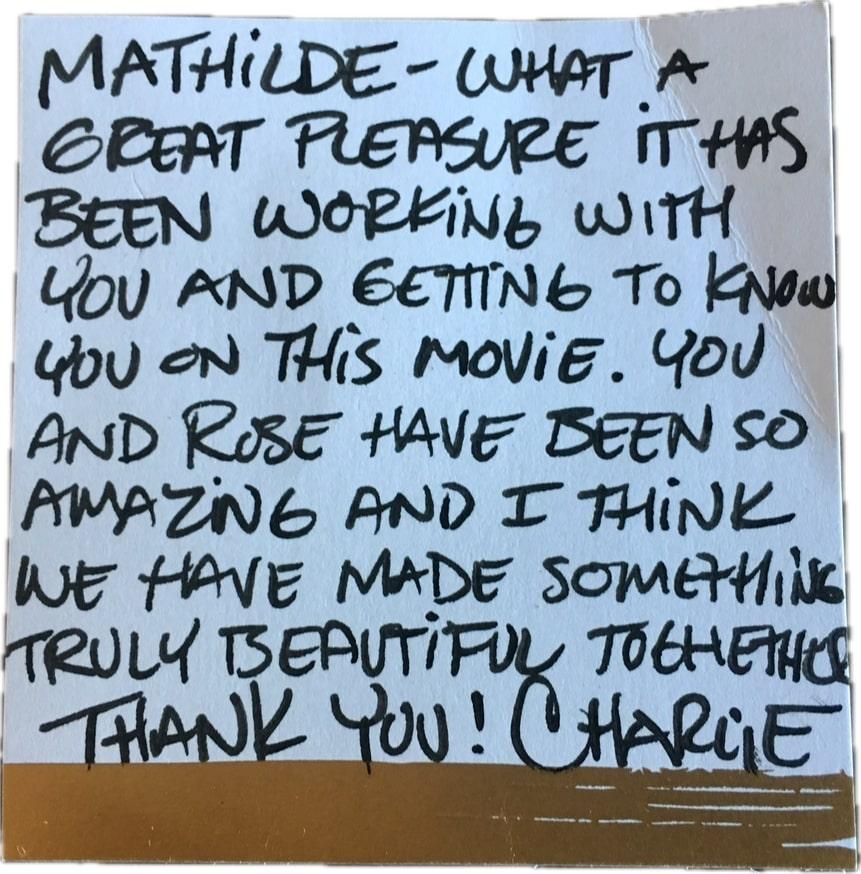 MATHiLDE - WHAT A
GREAT PLEASURE iT HAS
BEEN WORKiNG WITH
YOU AND GETTING TO KNOW
YOU ON THiS MOViE. YOU
AND ROSE HAVE BEEN SO
AMAZiNG AND I THiNK
WE HAVE MADE SOMETHiNG
TRULY BEAUTiFUL TOGHETHER
THANK YOU! CHARLiE